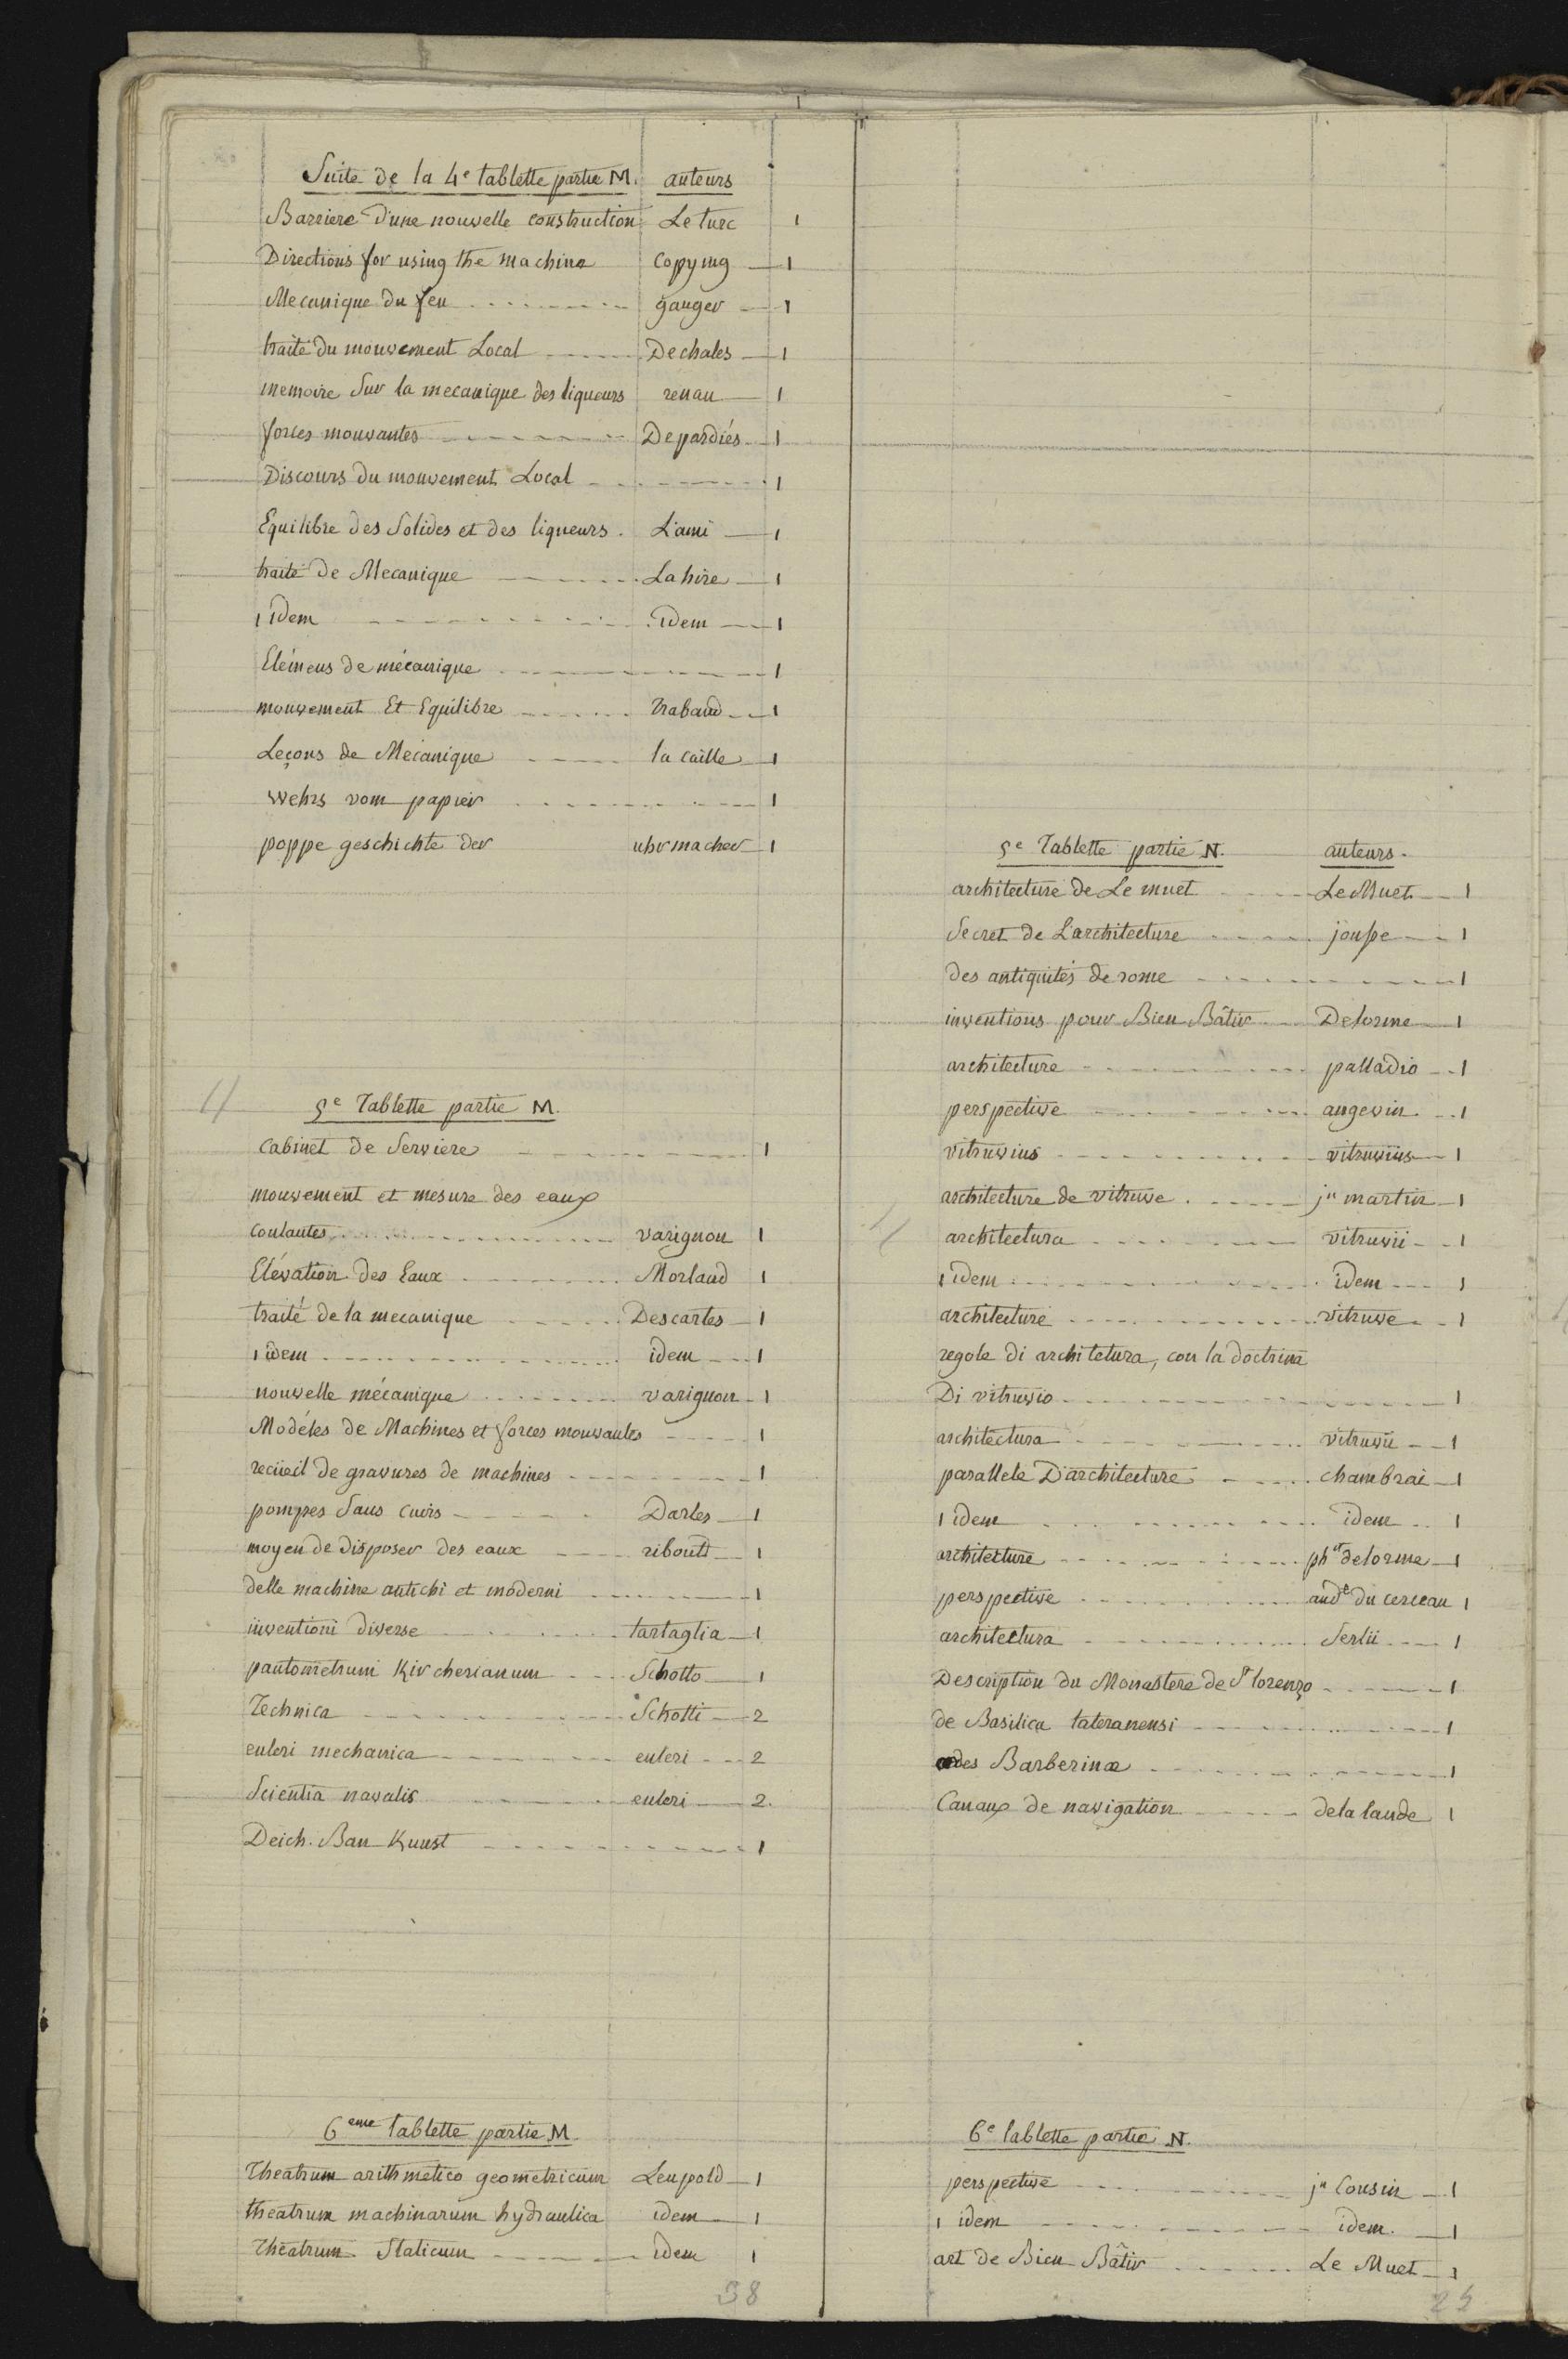 Suite de la 4e tablette partie M. auteurs
Barriere d'une nouvelle construction Le turc 1
Directions for using the machine Copying 1
Mecanique du feu gauger 1
traité du mouvement Local Dechales 1
memoire Sur la mecanique des liqueurs renau 1
forces mouvantes Depardiés 1
Discours du mouvement Local 1
Equilibre des Solides et des liqueurs. L'ami 1
traité de Mecanique La hire 1
1 idem idem 1
Elémens de mécanique 1
mouvement Et Equilibre Trabaud 1
Leçons de Mécanique la caille 1
wehrs vom papier 1
poppe geschichte der uhrmacher 1
5e Tablette partie M.
Cabinet de Serviere 1
mouvement et mesure des eaux
coulantes varignon 1
Elévation des Eaux Morland 1
traité de la mecanique Descartes 1
1 idem idem 1
nouvelle mécanique varignon 1
Modéles de Machines et forces mouvantes 1
recüeil de gravures de machines 1
pompes Sans cuirs Darles 1
moyen de disposer des eaux riboutt 1
delle machine antichi et moderni 1
inventioni diverse tartaglia 1
pantometrum Kircherianum Schotto 1
Technica Schotti 2
euleri mechanica euleri 2
Scientia navalis euleri 2.
Deich. Bau Kunst 1
6eme tablette partie M
Theatrum arithmetico geometricum Leupold 1
theatrum machinarum hydraulica idem 1
Theatrum Staticum idem 1
38
5e Tablette partie N. auteurs.
architecture de Le muet Le Muet 1
Secret de L'architecture jousse 1
des antiquités de rome 1
inventions pour Bien Bâtir Delorme 1
architecture palladio 1
perspective angevin 1
vitruvius vitruvius 1
architecture de vitruve jn martin 1
architectura vitruvii 1
1 idem idem 1
architecture vitruve 1
regole di architetura, con la doctrina
Di vitruvio 1
architectura vitruvii 1
parallele D'architecture chambrai 1
1 idem idem 1
architecture pht delorme 1
perspective andé du cerceau 1
architectura Serlii 1
Description du Monastere de St lorenzo 1
de Basilica lateranensi 1
ædes Barberinæ 1
Canaux de navigation dela lande 1
6e tablette partie N.
perspective jn Cousin 1
1 idem idem. 1
art de Bien Bâtir Le Muet 1
25